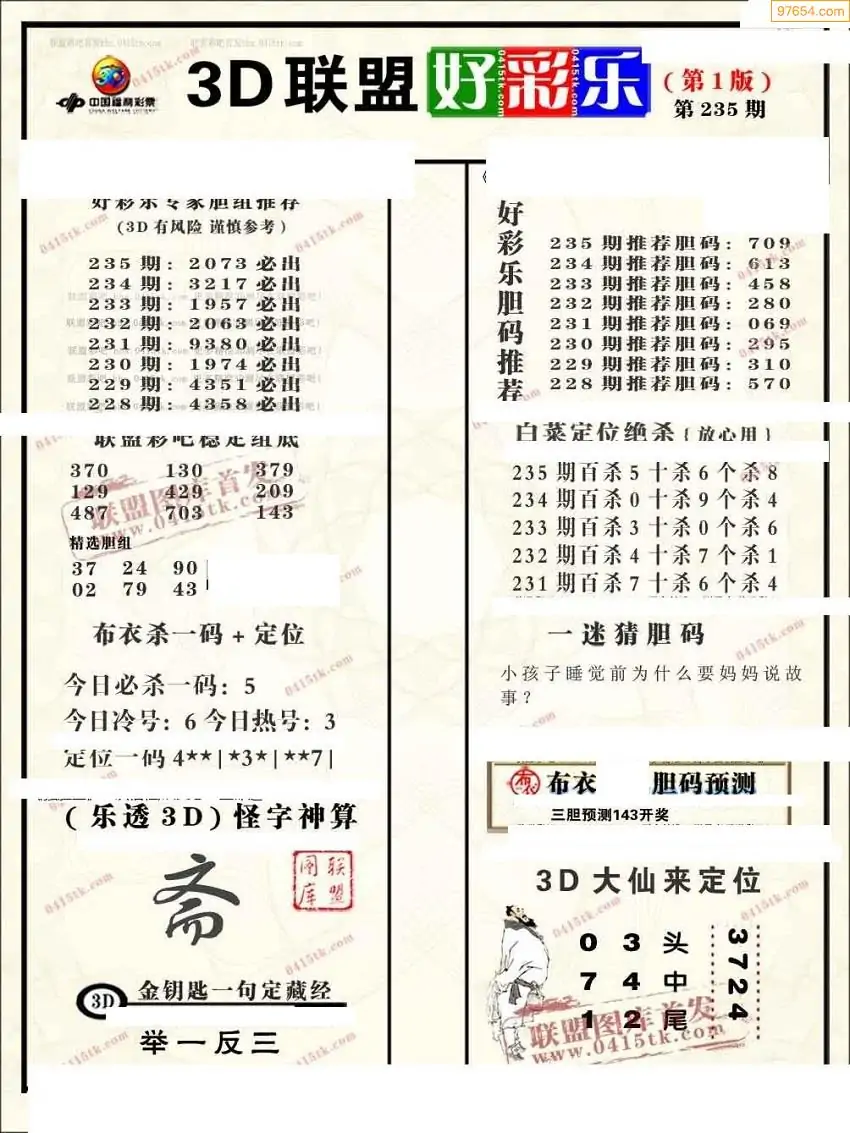 97654.com
中国福利彩票
CHINA WELFARE LOTTERY
3D联盟好彩乐
0415tk.com
0415tk.com
0415tk.com
(第1版)
第235期
好彩乐专家胆组推荐
(3D有风险 谨慎参考)
235期: 2073必出
234期: 3217必出
233期: 1957必出
232期: 2063必出
231期: 9380必出
230期: 1974必出
229期: 4351必出
228期: 4358必出
联盟彩吧稳定组底
370 130 379
129 429 209
487 703 143
联盟图库首发
www.0415tk.com
精选胆组
37 24 90
02 79 43
布衣杀一码+定位
今日必杀一码: 5
今日冷号: 6 今日热号: 3
定位一码 4**|*3*|**7|
(乐透3D)怪字神算
斋
联盟图库
3D 金钥匙一句定藏经
举一反三
好彩乐胆码推荐
235期推荐胆码: 709
234期推荐胆码: 613
233期推荐胆码: 458
232期推荐胆码: 280
231期推荐胆码: 069
230期推荐胆码: 295
229期推荐胆码: 310
228期推荐胆码: 570
白菜定位绝杀{放心用}
235期百杀5十杀6个杀8
234期百杀0十杀9个杀4
233期百杀3十杀0个杀6
232期百杀4十杀7个杀1
231期百杀7十杀6个杀4
一迷猜胆码
小孩子睡觉前为什么要妈妈说故
事?
布衣 胆码预测
三胆预测143开奖
3D大仙来定位
0 3 头
7 4 中
1 2 尾
3724
联盟图库首发
www.0415tk.com